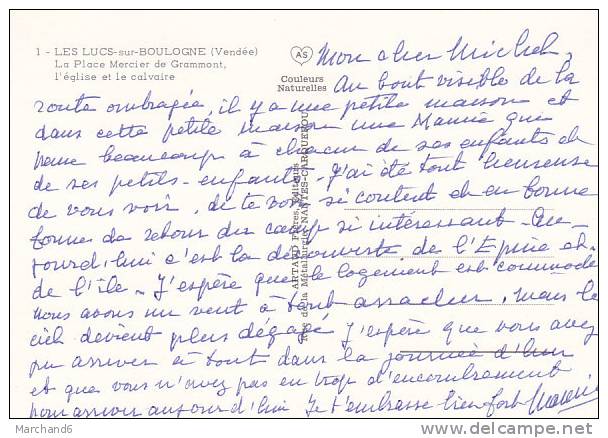 1 - LES LUCS-sur-BOULOGNE (Vendée)
La Place Mercier de Grammont,
l'église et le calvaire
AS
Couleurs
Naturelles
ARTAUD Frères, Editeurs
Rue de la Métallurgie, NANTES-CARQUEFOU
Mon cher Michel,
Au bout visible de la
route ombragée, il y a une petite maison et
dans cette petite maison une Mamie qui
pense beaucoup à chacun de ses enfants et
de ses petits-enfants. J'ai été tout heureuse
de vous voir, de te voir si content et en bonne
forme de retour du camp si intéressant. Au-
jourd'hui c'est la découverte de l'Epine et
de l'île. J'espère que le logement est commode
Nous avons un vent à tout arracher, mais le
ciel devient plus dégagé J'espère que vous avez
pu arriver à tout dans la journée d'hier
et que vous n'avez pas eu trop d'encombrement
pour arriver aujourd'hui Je t'embrasse bien fort Mamie
Marchand6
© Delcampe.net